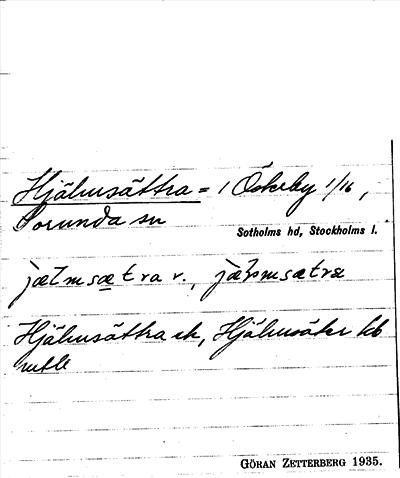 Hjälmsättra = 1 Öskeby 1/16,
Sorunda sn
Sotholms hd, Stockholms l.
Hjälmsättra ek, Hjälmsäter kb
GÖRAN ZETTERBERG 1935.